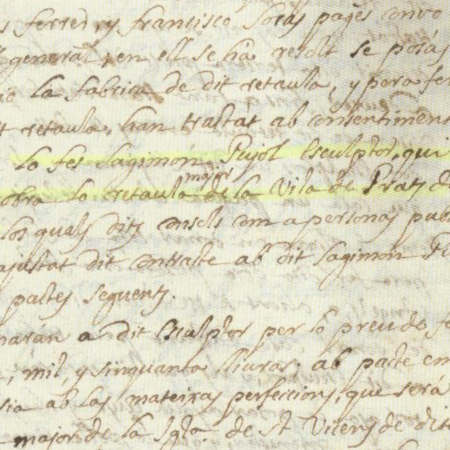 s ferrer, y francisco Soras pajes convo
general, en ell se ha resolt se poràs
la fabrica de dit retaula, y para fe
t retaula, han trastat ab consentiment
lo fes Sagimon Pujol Esculptor, qui
obra lo retaula major de la Vila de Pratz d
los quals ditz consols com a personas pub
ajustat dit contracte ab dit Sagimon
pactes seguentz.
naràn a dit Esculptor per lo preu do fe
mil, y sinquanta lliuras, ab pacte en
sia ab las mateixas perfeccions, que serà
major de la Igla. de St Vicens de dit